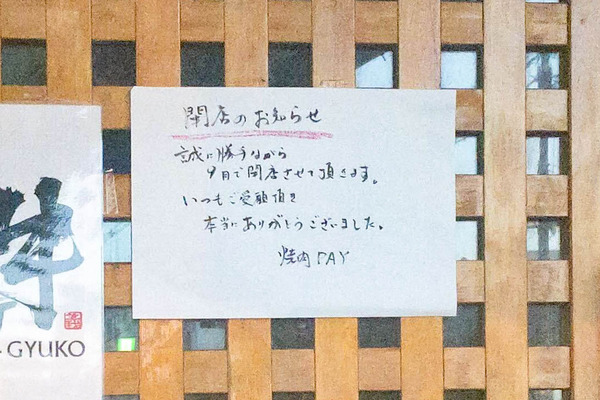 閉店のお知らせ
誠に勝手ながら
9月で閉店させて頂きます。
いつもご愛顧頂き
本当にありがとうございました。
焼肉 DAY
GYUKO